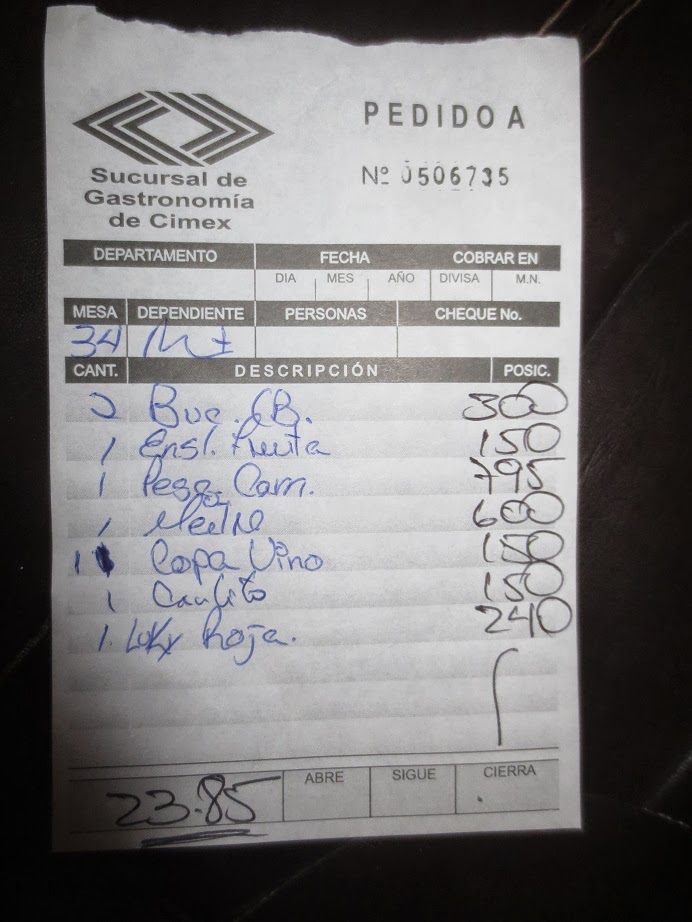 PEDIDO A
Nº 0506735
Sucursal de
Gastronomía
de Cimex
DEPARTAMENTO FECHA COBRAR EN
DIA MES AÑO DIVISA M.N.
MESA DEPENDIENTE PERSONAS CHEQUE No.
34
CANT. DESCRIPCIÓN POSIC.
2 Buc. CB. 300
1 Ensl. Fruta 150
1 Pesc. Cam. 795
1 600
1 Copa Vino 150
1 150
1. Luky Roja. 240
23.85 ABRE SIGUE CIERRA